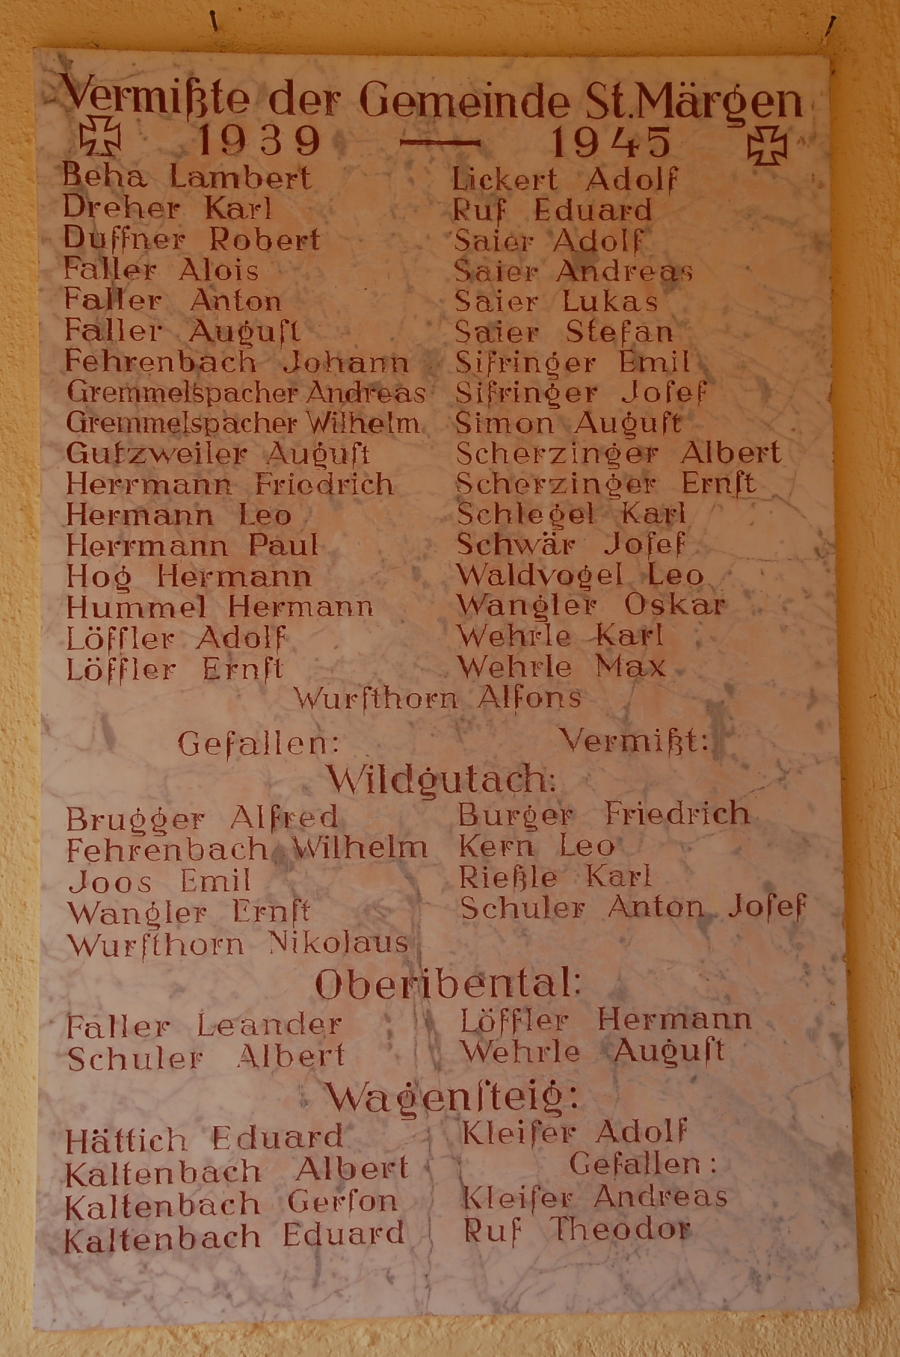 Vermißte der Gemeinde St. Märgen
1939 — 1945
Beha Lambert
Dreher Karl
Duffner Robert
Faller Alois
Faller Anton
Faller Auguſt
Fehrenbach Johann
Gremmelspacher Andreas
Gremmelspacher Wilhelm
Gutzweiler Auguſt
Herrmann Friedrich
Hermann Leo
Herrmann Paul
Hog Hermann
Hummel Hermann
Löffler Adolf
Löffler Ernſt
Lickert Adolf
Ruf Eduard
Saier Adolf
Saier Andreas
Saier Lukas
Saier Stefan
Sifringer Emil
Sifringer Joſef
Simon Auguſt
Scherzinger Albert
Scherzinger Ernſt
Schlegel Karl
Schwär Joſef
Waldvogel Leo
Wangler Oskar
Wehrle Karl
Wehrle Max
Wurſthorn Alfons
Gefallen: Vermißt:
Wildgutach:
Brugger Alfred
Fehrenbach Wilhelm
Joos Emil
Wangler Ernſt
Wurſthorn Nikolaus
Burger Friedrich
Kern Leo
Rießle Karl
Schuler Anton Joſef
Oberibental:
Faller Leander
Schuler Albert
Löffler Hermann
Wehrle Auguſt
Wagenſteig:
Hättich Eduard
Kaltenbach Albert
Kaltenbach Gerſon
Kaltenbach Eduard
Kleiſer Adolf
Gefallen:
Kleiſer Andreas
Ruf Theodor